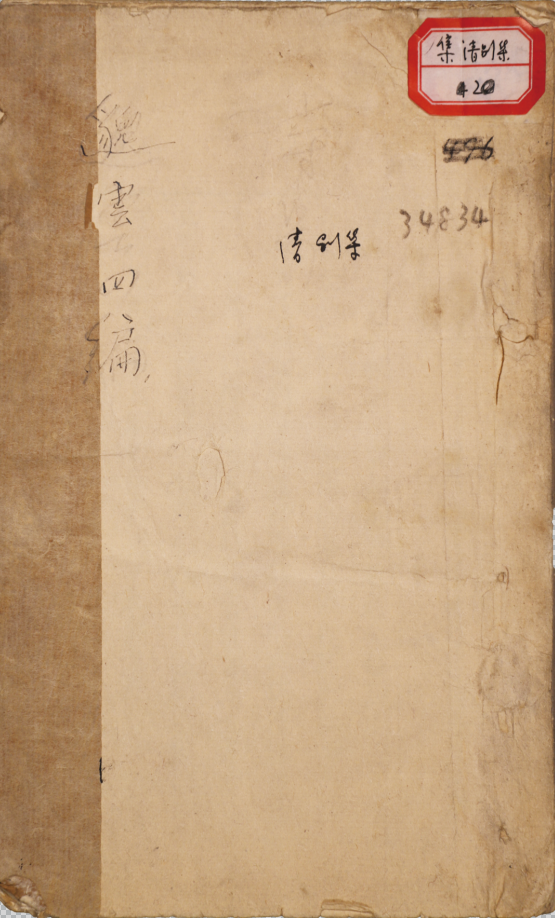 集 清別集
420
496
34834
清別集
邈雲
四編